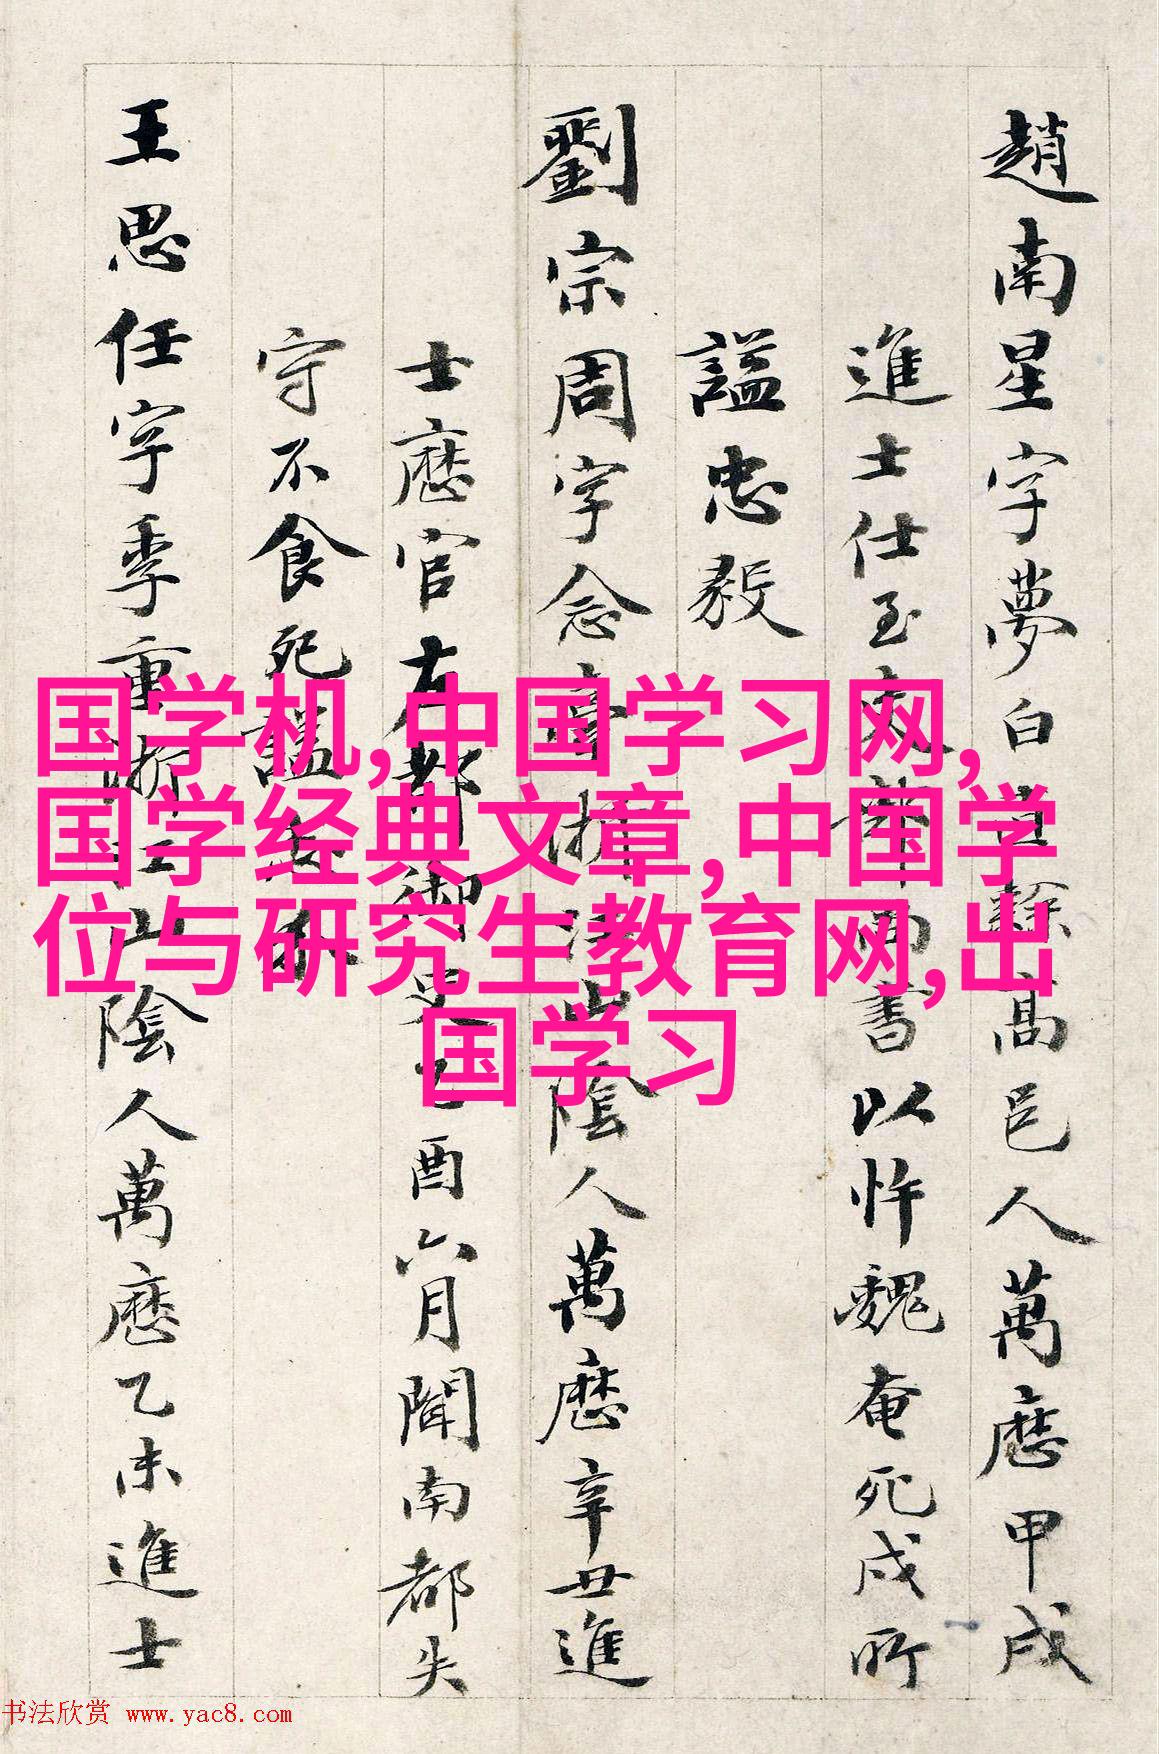 趙南星字夢白直隸高邑人萬厯甲戌
進士仕至吏部尚書以忤魏奄死戍所
諡忠毅
劉宗周字念臺浙江山陰人萬厯辛丑進
士厯官左都御史乙酉六月聞南都失
守不食死諡
王思任字季重浙江山陰人萬厯乙未進士
国学机,中国学习网,
国学经典文章,中国学
位与研究生教育网,出
国学习
书法欣赏 www.yac8.com